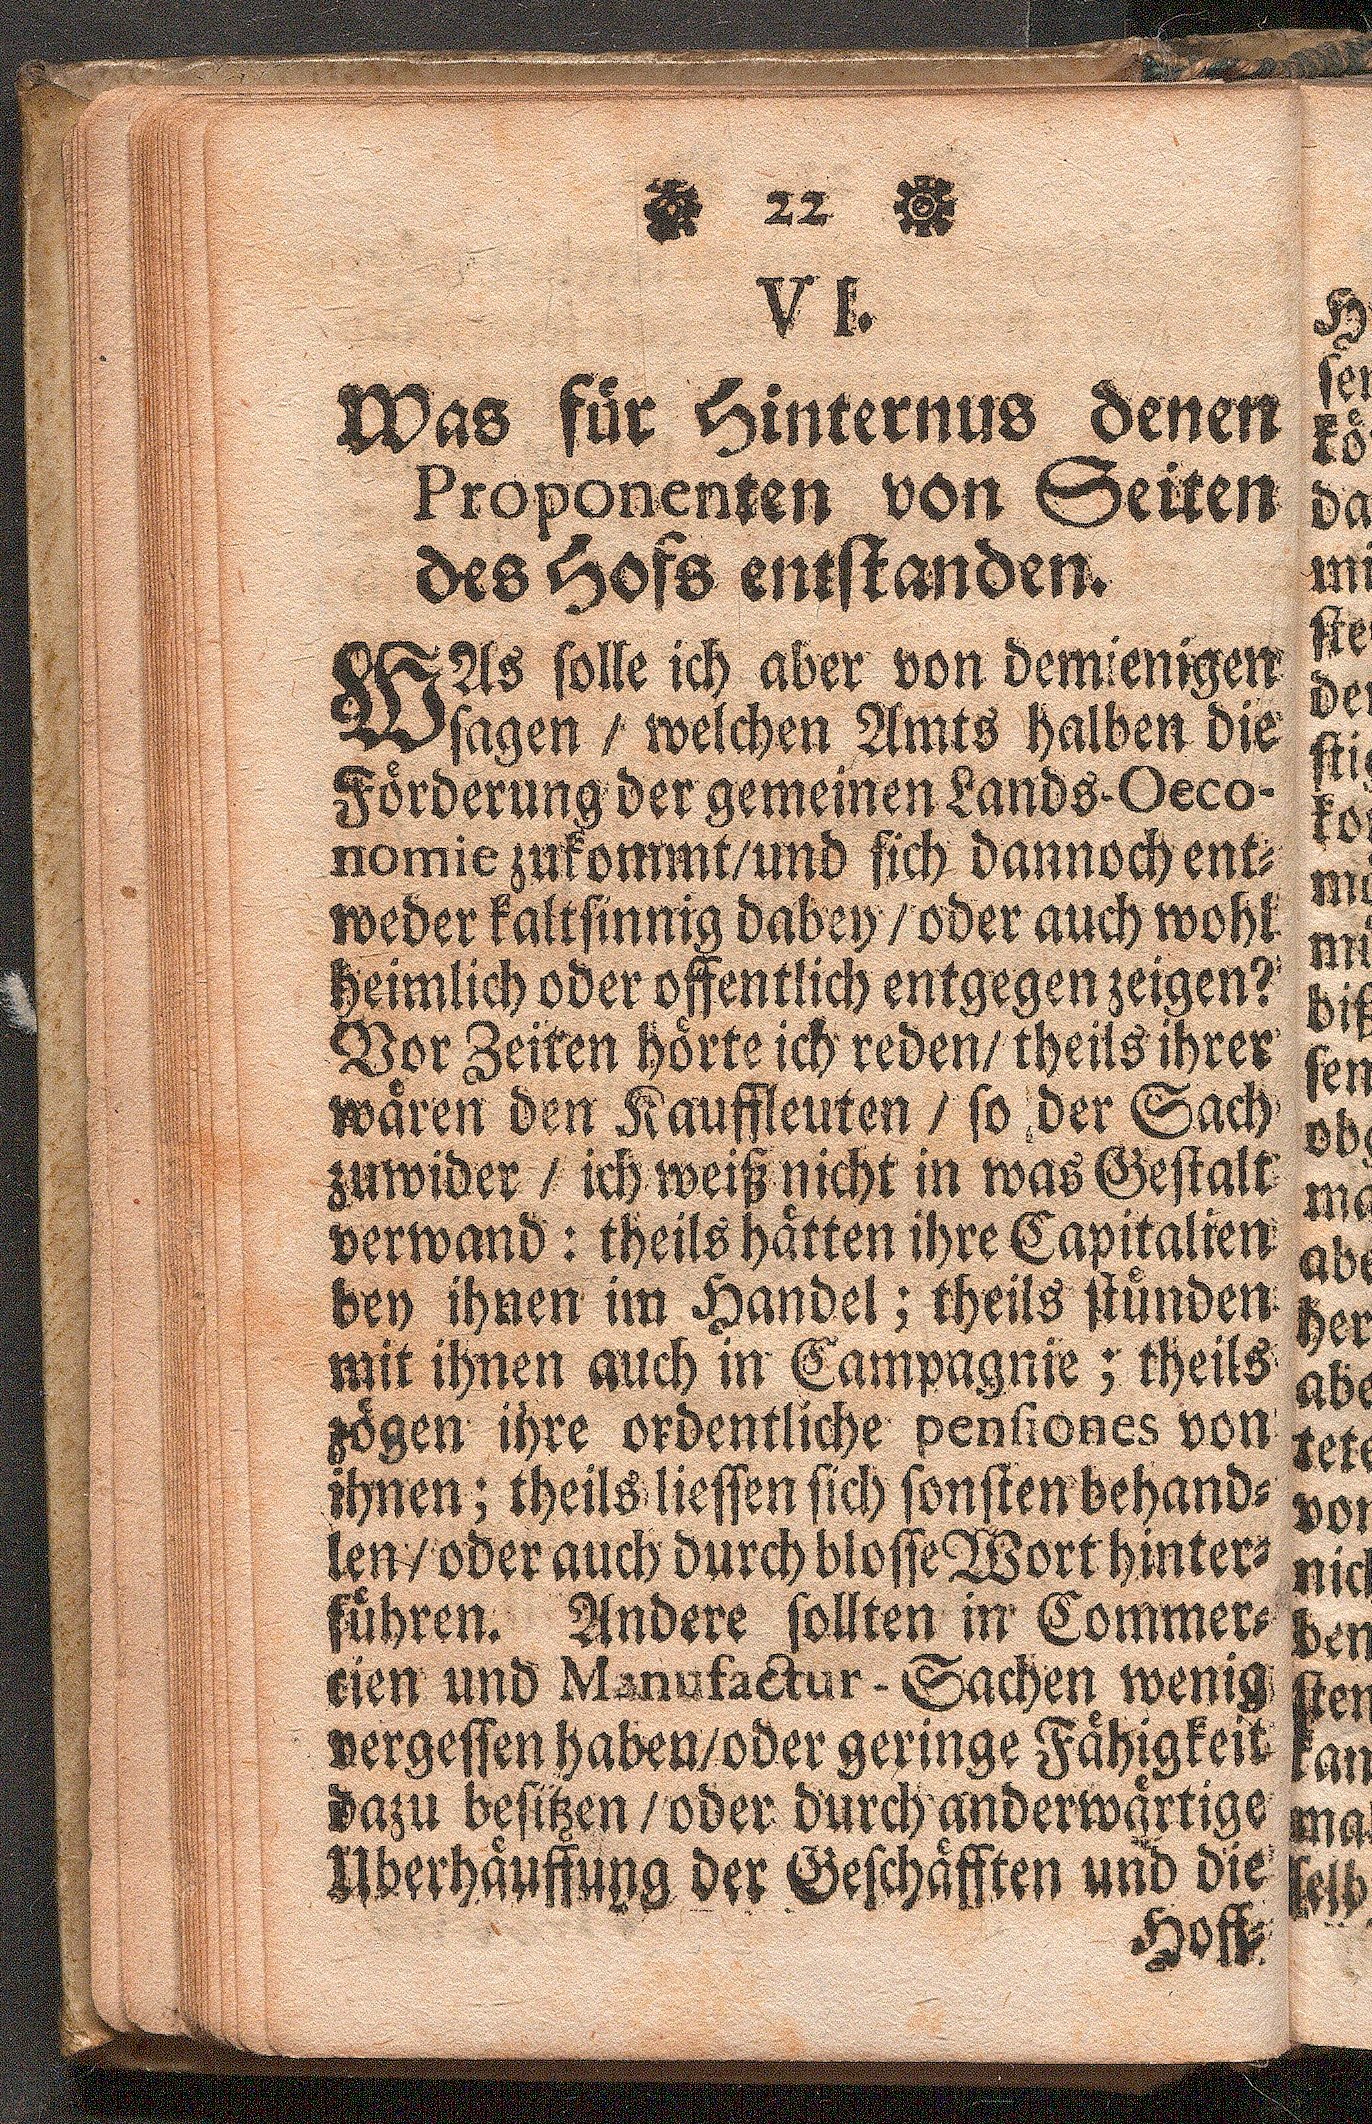 22
VI.
Was für Hinternus denen
Proponenten von Seiten
des Hofs entstanden.
WAs solle ich aber von demienigen
sagen / welchen Amts halben die
Förderung der gemeinen Lands-Oeco-
nomie zukommt/und sich dannoch ent-
weder kaltsinnig dabey / oder auch wohl
heimlich oder offentlich entgegen zeigen?
Vor Zeiten hörte ich reden/ theils ihrer
wären den Kauffleuten / so der Sach
zuwider / ich weiß nicht in was Gestalt
verwand : theils hätten ihre Capitalien
bey ihnen im Handel ; theils stünden
mit ihnen auch in Campagnie ; theils
zögen ihre ordentliche pensiones von
ihnen ; theils liessen sich sonsten behand-
len / oder auch durch blosse Wort hinter-
führen. Andere sollten in Commer-
cien und Manufactur-Sachen wenig
vergessen haben/oder geringe Fähigkeit
dazu besitzen / oder durch anderwärtige
Uberhäuffung der Geschäfften und die
Hoff-